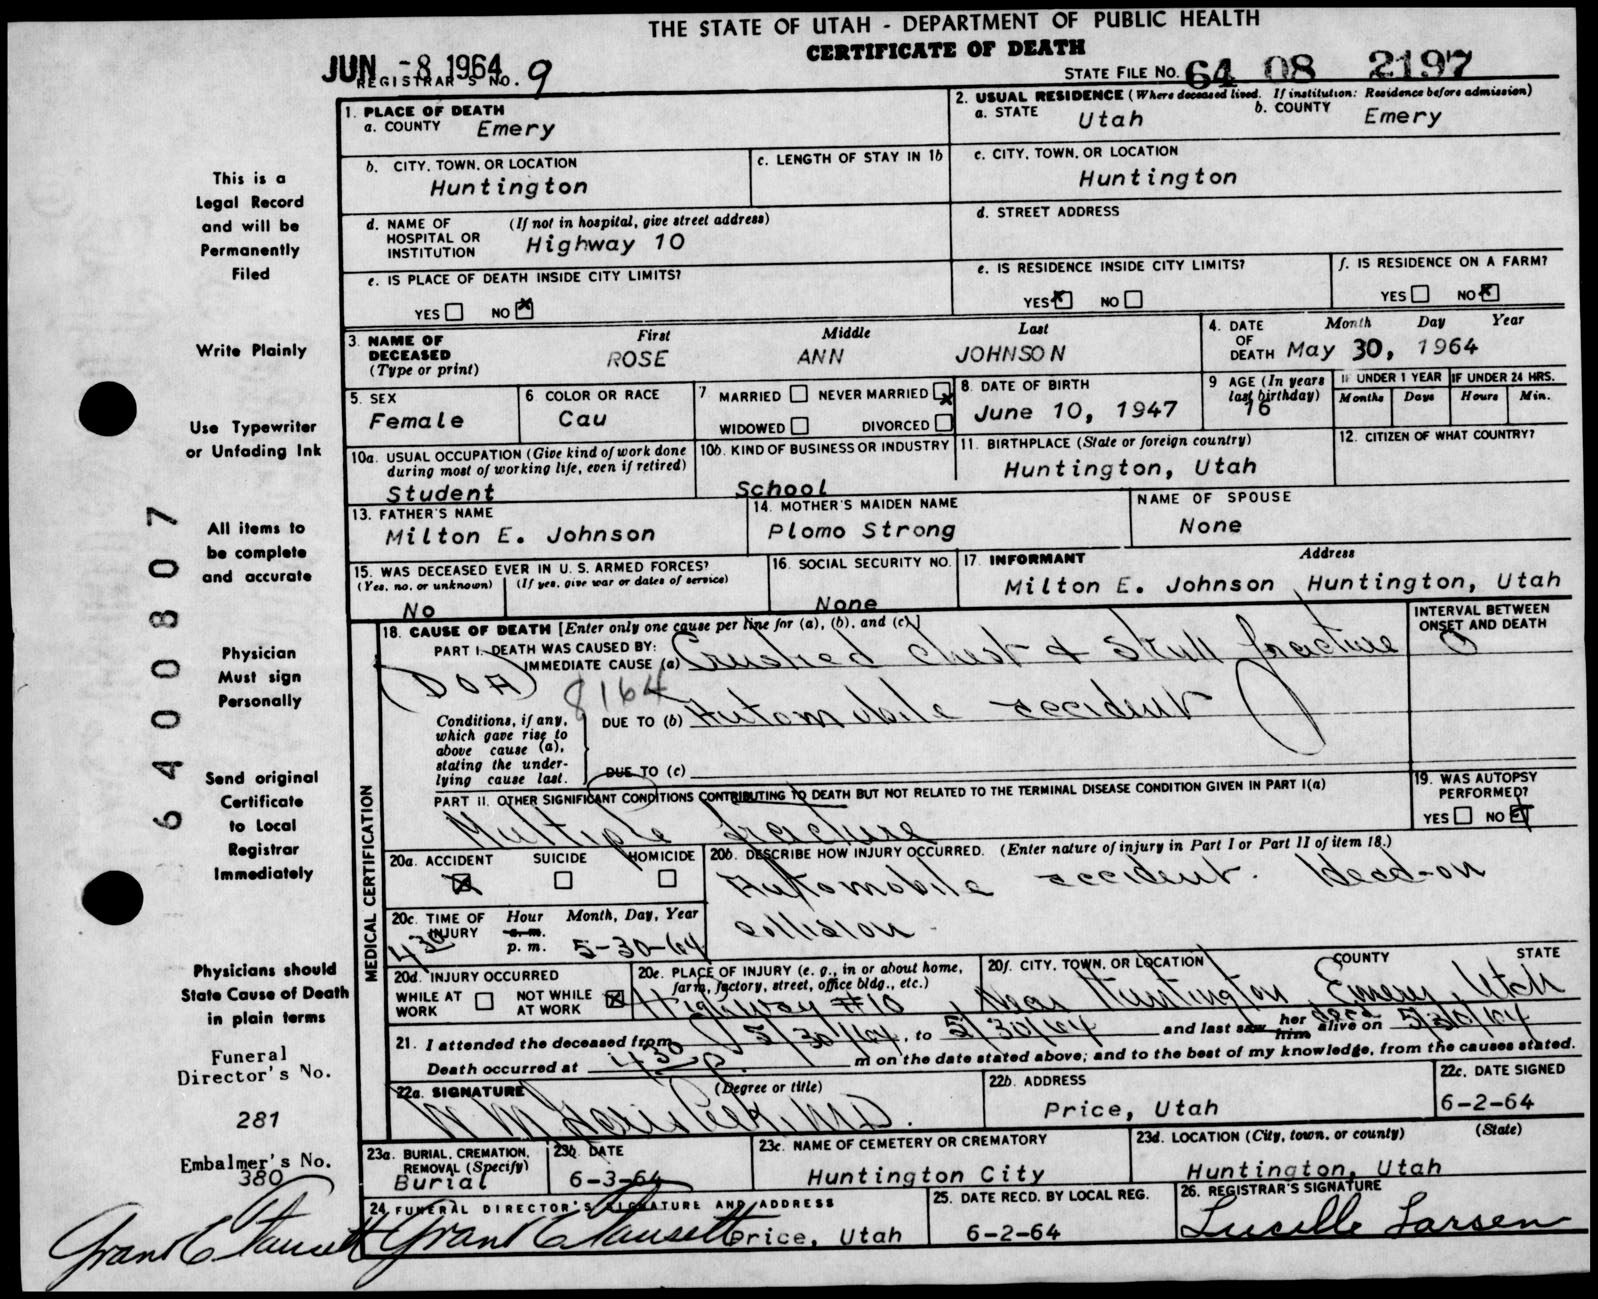 THE STATE OF UTAH - DEPARTMENT OF PUBLIC HEALTH
CERTIFICATE OF DEATH
JUN -8 1964
REGISTRAR'S NO. 9
STATE FILE NO. 64 08 2197
This is a
Legal Record
and will be
Permanently
Filed
Write Plainly
Use Typewriter
or Unfading Ink
All items to
be complete
and accurate
Physician
Must sign
Personally
Send original
Certificate
to Local
Registrar
Immediately
Physicians should
State Cause of Death
in plain terms
Funeral
Director's No.
281
Embalmer's No.
380
Grant C Fausett
64000807
1. PLACE OF DEATH
a. COUNTY Emery
2. USUAL RESIDENCE (Where deceased lived. If institution: Residence before admission)
a. STATE Utah b. COUNTY Emery
b. CITY, TOWN, OR LOCATION Huntington
c. LENGTH OF STAY IN 1b
c. CITY, TOWN, OR LOCATION Huntington
d. NAME OF HOSPITAL OR INSTITUTION (If not in hospital, give street address) Highway 10
d. STREET ADDRESS
e. IS PLACE OF DEATH INSIDE CITY LIMITS?
YES NO x
e. IS RESIDENCE INSIDE CITY LIMITS?
YES x NO
f. IS RESIDENCE ON A FARM?
YES NO x
3. NAME OF DECEASED (Type or print) First Middle Last
ROSE ANN JOHNSON
4. DATE OF DEATH Month Day Year
May 30, 1964
5. SEX Female
6. COLOR OR RACE Cau
7 MARRIED NEVER MARRIED x
WIDOWED DIVORCED
8. DATE OF BIRTH June 10, 1947
9 AGE (In years last birthday) 16
IF UNDER 1 YEAR Months Days
IF UNDER 24 HRS. Hours Min.
10a. USUAL OCCUPATION (Give kind of work done during most of working life, even if retired)
Student
10b. KIND OF BUSINESS OR INDUSTRY
School
11. BIRTHPLACE (State or foreign country)
Huntington, Utah
12. CITIZEN OF WHAT COUNTRY?
13. FATHER'S NAME
Milton E. Johnson
14. MOTHER'S MAIDEN NAME
Plomo Strong
NAME OF SPOUSE
None
15. WAS DECEASED EVER IN U. S. ARMED FORCES?
(Yes, no, or unknown) (If yes, give war or dates of service)
No
16. SOCIAL SECURITY NO.
None
17. INFORMANT Address
Milton E. Johnson Huntington, Utah
MEDICAL CERTIFICATION
18. CAUSE OF DEATH [Enter only one cause per line for (a), (b), and (c).]
INTERVAL BETWEEN ONSET AND DEATH
PART I. DEATH WAS CAUSED BY:
IMMEDIATE CAUSE (a) Crushed chest & skull fracture 0
(DOA)
8164
Conditions, if any, which gave rise to above cause (a), stating the underlying cause last.
DUE TO (b) Automobile accident
DUE TO (c)
PART II. OTHER SIGNIFICANT CONDITIONS CONTRIBUTING TO DEATH BUT NOT RELATED TO THE TERMINAL DISEASE CONDITION GIVEN IN PART I(a)
Multiple fracture
19. WAS AUTOPSY PERFORMED?
YES NO x
20a. ACCIDENT SUICIDE HOMICIDE
x
20b. DESCRIBE HOW INJURY OCCURRED. (Enter nature of injury in Part I or Part II of item 18.)
Automobile accident. Head-on
collision.
20c. TIME OF INJURY Hour Month, Day, Year
a. m.
p. m.
430 5-30-64
20d. INJURY OCCURRED
WHILE AT WORK NOT WHILE AT WORK x
20e. PLACE OF INJURY (e. g., in or about home, farm, factory, street, office bldg., etc.)
Highway #10
20f. CITY, TOWN, OR LOCATION COUNTY STATE
Near Huntington, Emery, Utah
21. I attended the deceased from 5/30/64, to 5/30/64 and last saw her him dead alive on 5/30/64
Death occurred at 430 p. m on the date stated above; and to the best of my knowledge, from the causes stated.
22a. SIGNATURE (Degree or title)
M.D.
22b. ADDRESS
Price, Utah
22c. DATE SIGNED
6-2-64
23a. BURIAL, CREMATION, REMOVAL (Specify)
Burial
23b. DATE
6-3-64
23c. NAME OF CEMETERY OR CREMATORY
Huntington City
23d. LOCATION (City, town, or county) (State)
Huntington, Utah
24 FUNERAL DIRECTOR'S SIGNATURE AND ADDRESS
Grant C Fausett Price, Utah
25. DATE RECD. BY LOCAL REG.
6-2-64
26. REGISTRAR'S SIGNATURE
Lucille Larsen